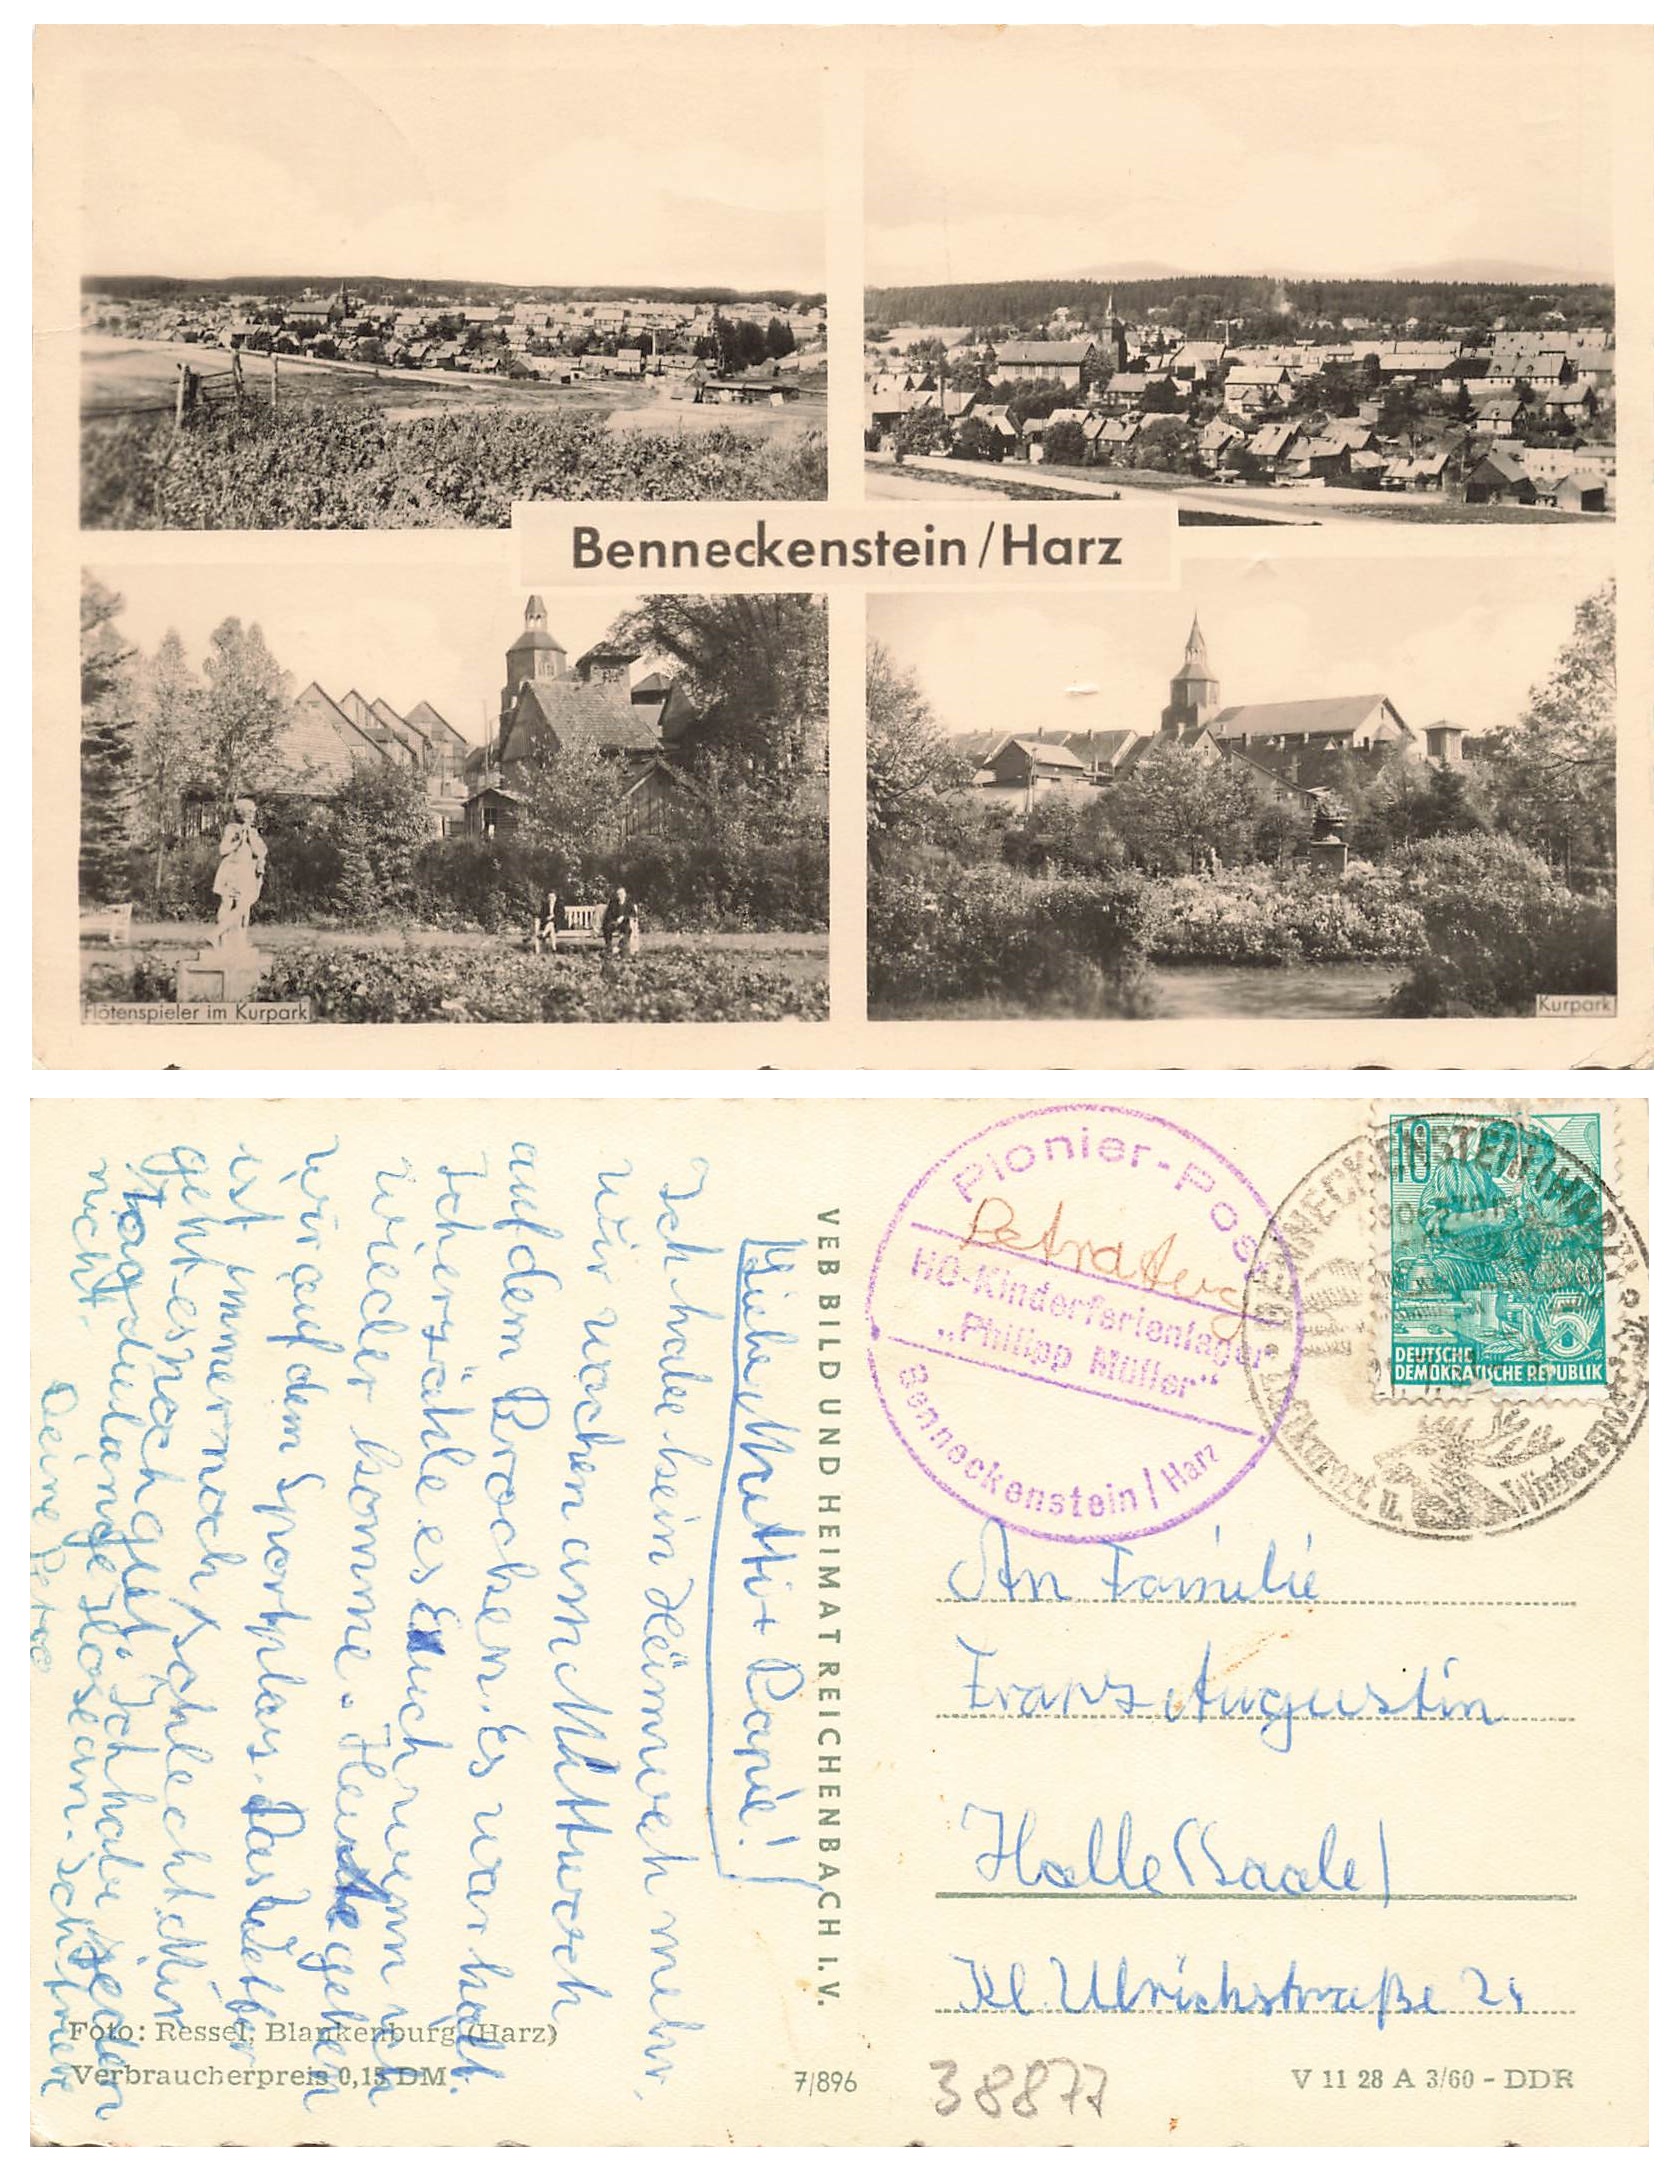 Benneckenstein/Harz
Flötenspieler im Kurpark
Kurpark
Liebe Mutti + Papi!
Ich habe kein Heimweh mehr.
Wir waren am Mittwoch
auf dem Brocken. Es war kalt.
Ich erzähle es Euch wenn ich
wieder komme. Heute gehen
wir auf dem Sportplas. Das Wetter
ist immer noch schlecht. Mir
geht es noch gut. Ich habe jeden
Tag die lange Hose an.
nicht.
Deine Petra
VEB BILD UND HEIMAT REICHENBACH I. V.
Foto: Ressel, Blankenburg (Harz)
Verbraucherpreis 0,15 DM
7/896
Pionier-Post
Petra
HO-Kinderferienlager
„Philipp Müller"
Benneckenstein / Harz
BENNECKENSTEIN (HARZ)
Luftkurort u. Wintersport
10
5
DEUTSCHE
DEMOKRATISCHE REPUBLIK
An Familie
Franz Augustin
Halle (Saale)
Kl. Ulrichstraße
38877
V 11 28 A 3/60 - DDR